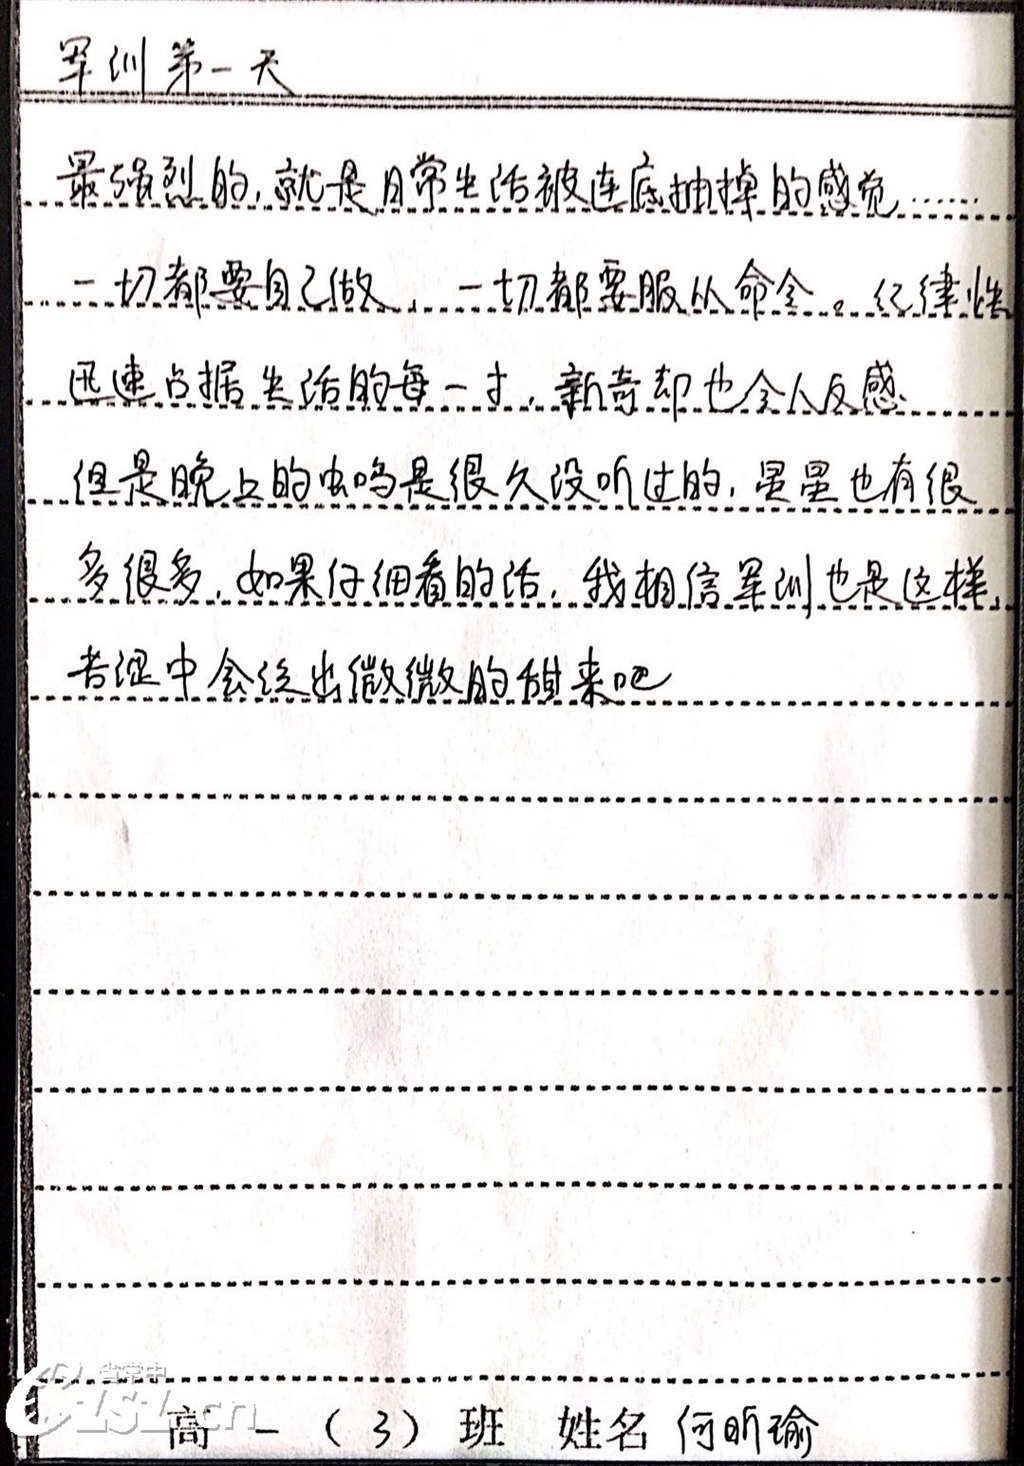 军训第一天
最强烈的,就是日常生活被连底抽掉的感觉……
一切都要自己做,一切都要服从命令。纪律性
迅速占据生活的每一寸,新奇却也令人反感.
但是晚上的虫鸣是很久没听过的,星星也有很
多很多,如果仔细看的话,我相信军训也是这样,
苦涩中会溢出微微的甜来吧
高一(3)班 姓名 何昕瑜
省常中